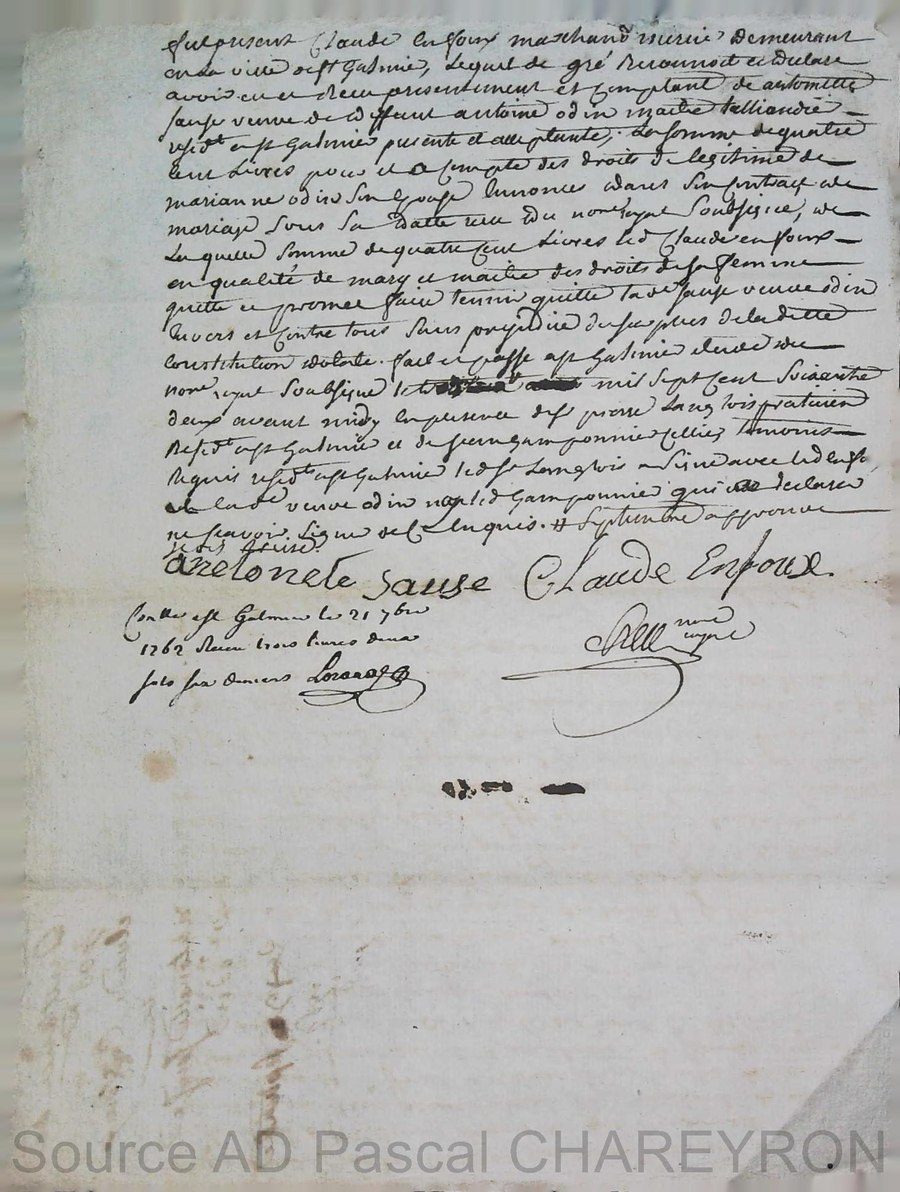 fut present Claude enfoux marchand mercier demeurant
en la ville de st Galmier, Lequel de gré Reconnoit et declare
avoir eu et Receu presentement et comptant de antoinette
sause veuve de deffunt antoine odin maitre talliandié
resid.t a st Galmier presente et acceptante, La somme de quatre
cent Livres pour et a compte des droits de legitime de
marianne odin son Epouse Enoncés dans son contract de
mariage sous sa datte receu du no.re royal soubsigné, de
Laquelle somme de quatre cent Livres led Claude enfoux
en qualité de mary et maitre des droits de sa femme
quitte et promet faire tennir quitte lad.e sause veuve odin
Envers et contre tous sans prejudice du surplus de la ditte
constitution dotale. fait et passé a st Galmier etude du
no.re royal soubsigné le mil sept cent soixante
deux avant midy En presence de sr pierre Langlois praticien
Resid.t a st Galmier et de jean Gamponnie temoins
Requis resid.t a st Galmier led sr Langlois a signé avec led enfo
et lad.e veuve odin non led Gamponnie qui a declaré
ne scavoir signer de ce Enquis. # septembre approuvé
anetonete sause Claude Enfoux.
Con.lle a st Galmier le 21 7bre
1762 Receu trois livres deux
sols six deniers
no.re
royal
Source AD Pascal CHAREYRON